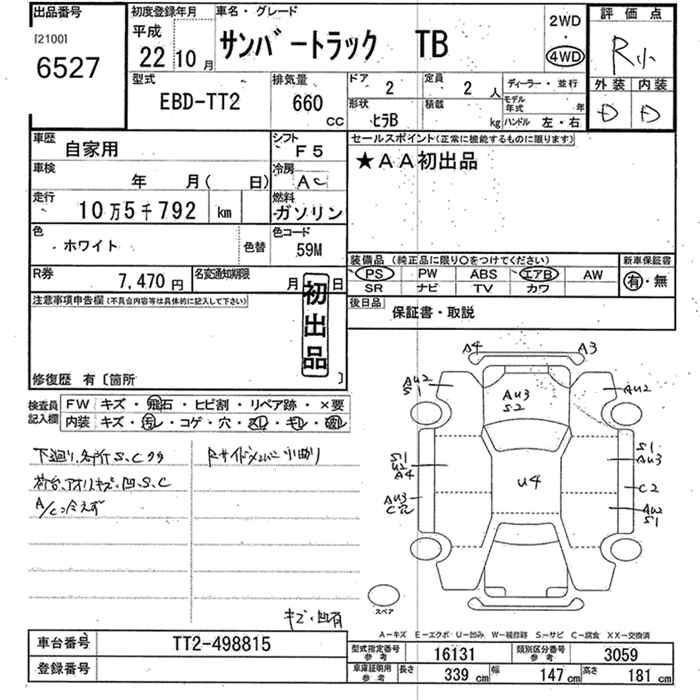 出品番号
[2100]
6527
初度登録年月
平成
22 10 月
車名・グレード
サンバートラック TB
2WD
・
4WD
評価点
R小
外装 内装
D D
型式
EBD-TT2
排気量
660 cc
ドア
2
定員
2 人
形状
ヒラB
積載
kg
ディーラー・並行
モデル年式 年
ハンドル 左・右
車歴
自家用
シフト
F5
車検
年 月( 日)
冷房
AC
走行
10万5千792 km
燃料
ガソリン
色
ホワイト
色替
色コード
59M
R券
7,470 円
名変通知期限
月 日
セールスポイント(正常に機能するものに限ります)
★AA初出品
装備品(純正品に限り○をつけてください)
PS PW ABS エアB AW
SR ナビ TV カワ
新車保証書
有・無
後日品
保証書・取説
注意事項申告欄(不具合内容等は具体的に記入して下さい)
初出品
修復歴 有〔箇所 〕
検査員記入欄
FW キズ・飛石・ヒビ割・リペア跡・×要
内装 キズ・汚レ・コゲ・穴・
下廻り、各所S、C
荷台、アオリキズ、凹、S、C
A/C冷えず
キズ・凹有
A4 A3
AU2
S1
AU3
S2
AU2
S1
U2
A4
U4
S1
AU3
AU3
C2
S1
スペア
A-キズ E-エクボ U-凹み W-補修跡 S-サビ C-腐食 XX-交換済
車台番号 TT2-498815
登録番号
型式指定番号 参考 16131 類別区分番号 参考 3059
車庫証明用 参考 長さ 339 cm 幅 147 cm 高さ 181 cm